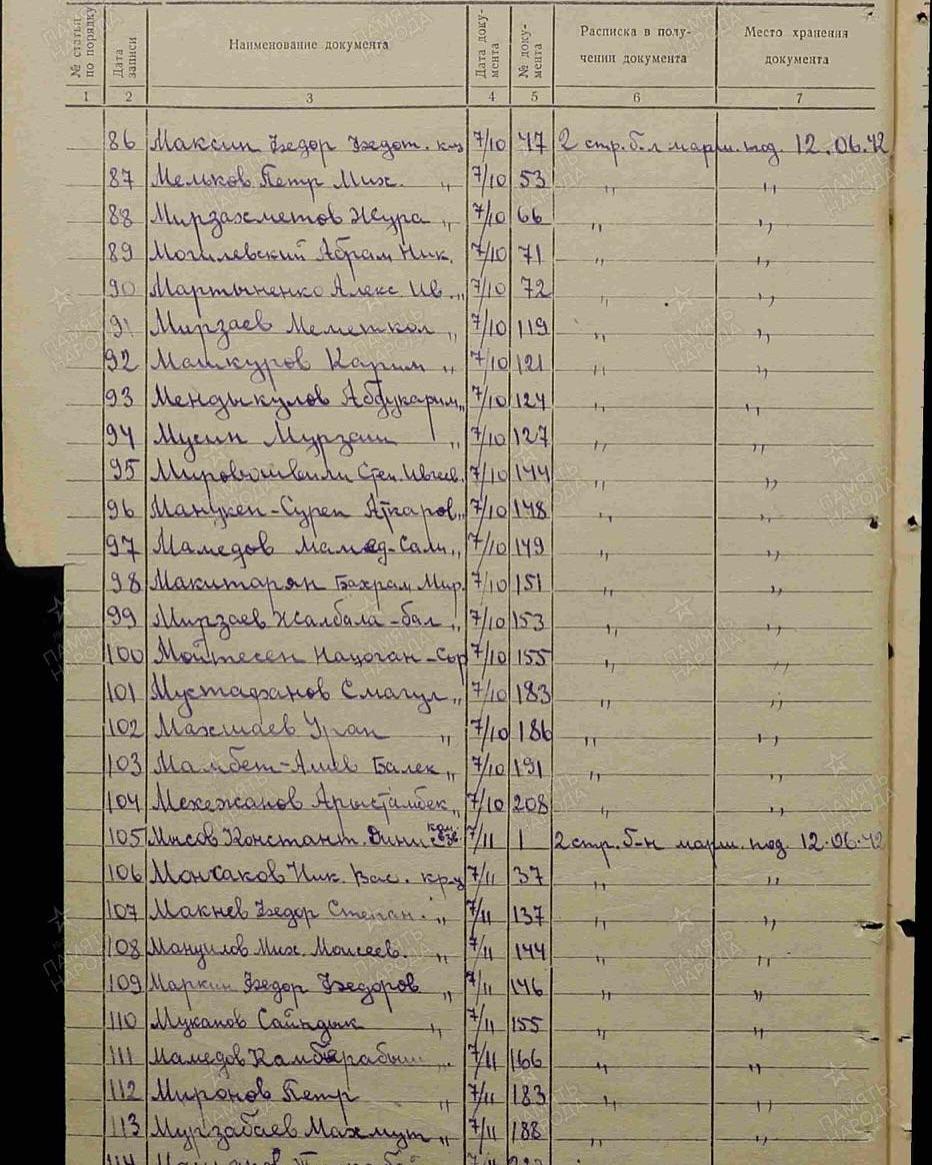 № статьи по порядку
Дата записи
Наименование документа
Дата документа
№ документа
Расписка в получении документа
Место хранения документа
1 2 3 4 5 6 7
86 Максин Федор Федот. к-ц 7/10 47 2 стр. б-л марш. под. 12.06.42
87 Мельков Петр Мих. " 7/10 53 " "
88 Мирзахметов Жура " 7/10 66 " "
89 Могилевский Абрам Ник. 7/10 71 " "
90 Мартыненко Алекс Ив. " 7/10 72 " "
91 Мирзаев Меметкол " 7/10 119 " "
92 Машкуров Карим " 7/10 121 " "
93 Мендыкулов Абдукарим " 7/10 124 " "
94 Мусин Мурзаш " 7/10 127 " "
95 Степ. 7/10 144 " "
96 Манукен-Сурен " 7/10 148 " "
97 Мамедов Мамед-Сали " 7/10 149 " "
98 Макитарян Бахрам Мир. 7/10 151 " "
99 Мирзаев Жалбала-бал " 7/10 153 " "
100 Мойтесен 7/10 155 " "
101 Мустафанов Смагул " 7/10 183 " "
102 Махшаев Урап " 7/10 186 " "
103 Мамбет-Алиев Балек " 7/10 191 " "
104 Мекежанов Арыстамбек " 7/10 208 " "
105 Мысов Констант. 7/11 1 2 стр. б-н марш. под. 12.06.42
106 Мончаков Ник. Вас. кр-ц 7/11 37 " "
107 Макнев Федор Степан. " 7/11 137 " "
108 Мануилов Мих. Моисеев. " 7/11 144 " "
109 Маркин Федор Федоров " 7/11 146 " "
110 Муканов Сайндык " 7/11 155 " "
111 Мамедов " 7/11 166 " "
112 Миронов Петр " 7/11 183 " "
113 Мурзабаев Махмут " 7/11 188 " "